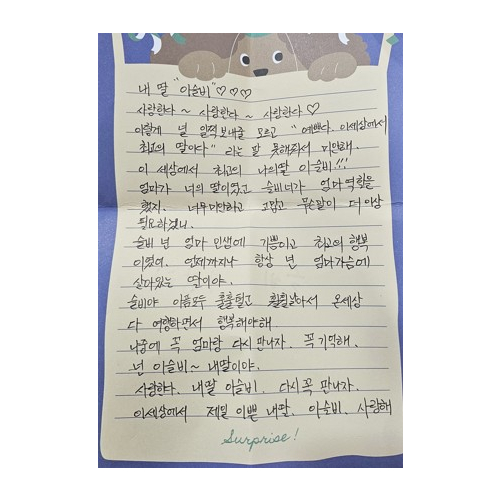 내 딸 "이슬비" ♡♡♡
사랑한다 ~ 사랑한다 ~ 사랑한다 ♡
이렇게 널 일찍 보내줄 모르고 "예쁘다. 이세상에서
최고의 딸이다" 라는 말 못해줘서 미안해.
이 세상에서 최고의 나의딸 이슬비!!!
엄마가 너의 딸이였고 슬비너가 엄마 역할을
했지. 너무 미안하고 고맙고 무슨말이 더이상
필요하겠니.
슬비 넌 엄마 인생에 기쁨이고 최고의 행복
이였어. 언제까지나 항상 넌 엄마가슴에
살아있는 딸이야.
슬비야 아픔모두 훌훌털고 훨훨날아서 온세상
다 여행하면서 행복해야해.
나중에 꼭 엄마랑 다시 만나자. 꼭 기억해.
넌 이슬비~ 내딸이야.
사랑한다. 내딸 이슬비. 다시꼭 만나자.
이세상에서 제일 이쁜 내딸. 이슬비. 사랑해
Surprise!